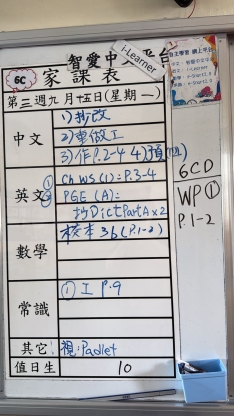 智愛中文平台
i-Learner
6C
家課表
第三週九月十五日(星期一)
中文
1)拆改
2)重做工
3)作P.2-4 4)預(P.2)
英文
① Ch WS (1): P.3-4
② PGE (A):
抄Dict Part A x 2
數學
校本3b(P.1-2)
常識
① 工 P.9
其它
視:Padlet
值日生
10
6CD
WP①
P.1-2